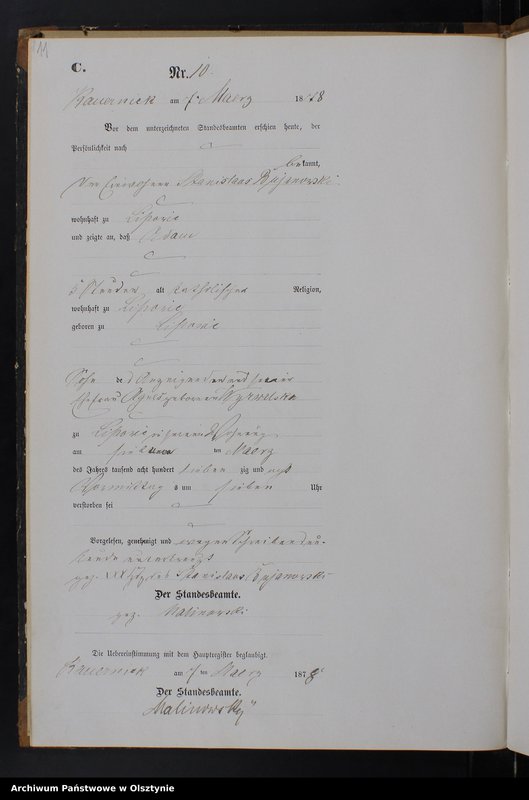 11
C.
Nr. 10.
Kauernick am 7ten Maerz 1878
Vor dem unterzeichneten Standesbeamten erschien heute, der
Persönlichkeit nach
bekannt,
der Einwohner Stanislaus Bujanowski
wohnhaft zu
und zeigte an, daß Adam
5 Stunden alt katholischer Religion,
wohnhaft zu
geboren zu
Sohn des Anzeigenden und seiner
Ehefrau Agnes geborenen
zu in seiner Wohnung
am sieben ten Maerz
des Jahres tausend acht hundert sieben zig und acht
Vormittag s um sieben Uhr
verstorben sei
Vorgelesen, genehmigt und wegen Schreibensun-
kunde unterkreuzt
gez. XXX Stanislaus Bujanowski
Der Standesbeamte.
gez. Malinowski
Die Uebereinstimmung mit dem Hauptregister beglaubigt.
Kauernick am 7 ten Maerz 1878
Der Standesbeamte.
Malinowski
Archiwum Państwowe w Olsztynie